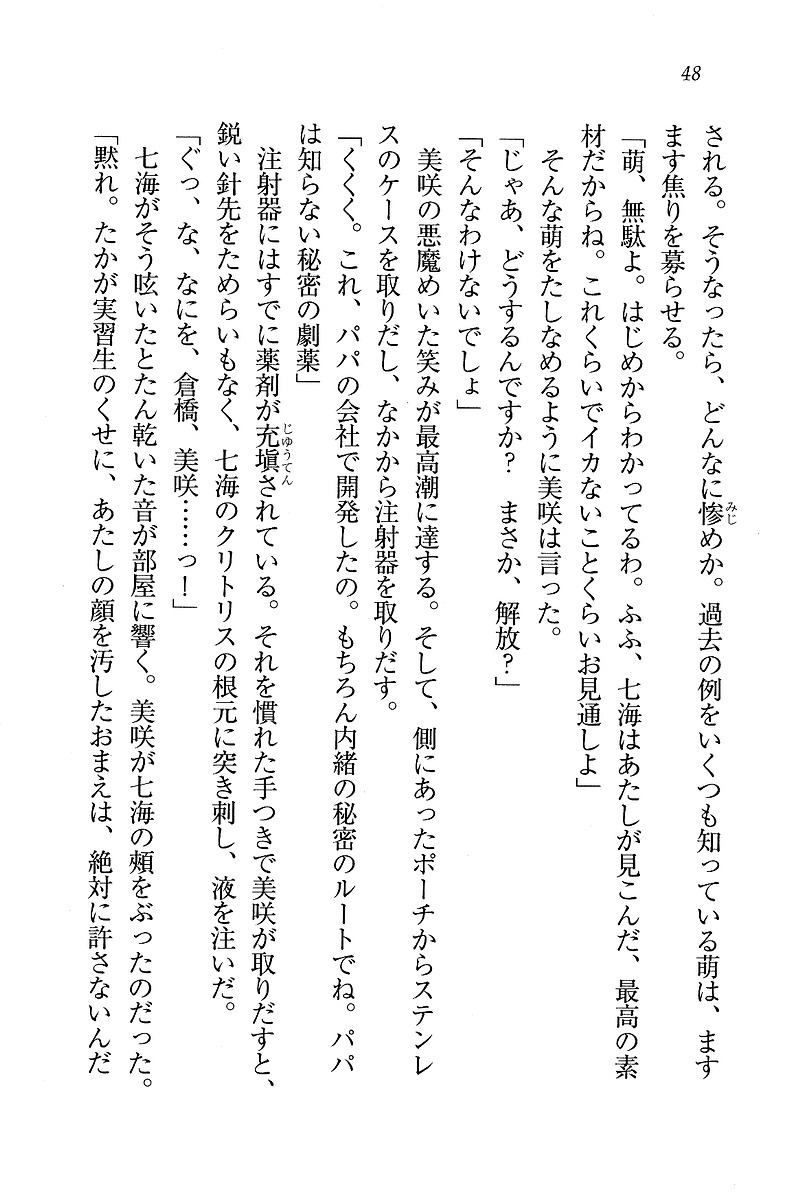 48
される。そうなったら、どんなに惨めか。過去の例をいくつも知っている萌は、ます
ます焦りを募らせる。
「萌、無駄よ。はじめからわかってるわ。ふふ、七海はあたしが見こんだ、最高の素
材だからね。これくらいでイカないことくらいお見通しよ」
そんな萌をたしなめるように美咲は言った。
「じゃあ、どうするんですか？　まさか、解放？」
「そんなわけないでしょ」
美咲の悪魔めいた笑みが最高潮に達する。そして、側にあったポーチからステンレ
スのケースを取りだし、なかから注射器を取りだす。
「くくく。これ、パパの会社で開発したの。もちろん内緒の秘密のルートでね。パパ
は知らない秘密の劇薬」
注射器にはすでに薬剤が充塡されている。それを慣れた手つきで美咲が取りだすと、
鋭い針先をためらいもなく、七海のクリトリスの根元に突き刺し、液を注いだ。
「ぐっ、な、なにを、倉橋、美咲……っ！」
七海がそう呟いたとたん乾いた音が部屋に響く。美咲が七海の頰をぶったのだった。
「黙れ。たかが実習生のくせに、あたしの顔を汚したおまえは、絶対に許さないんだ
みじ
じゅうてん